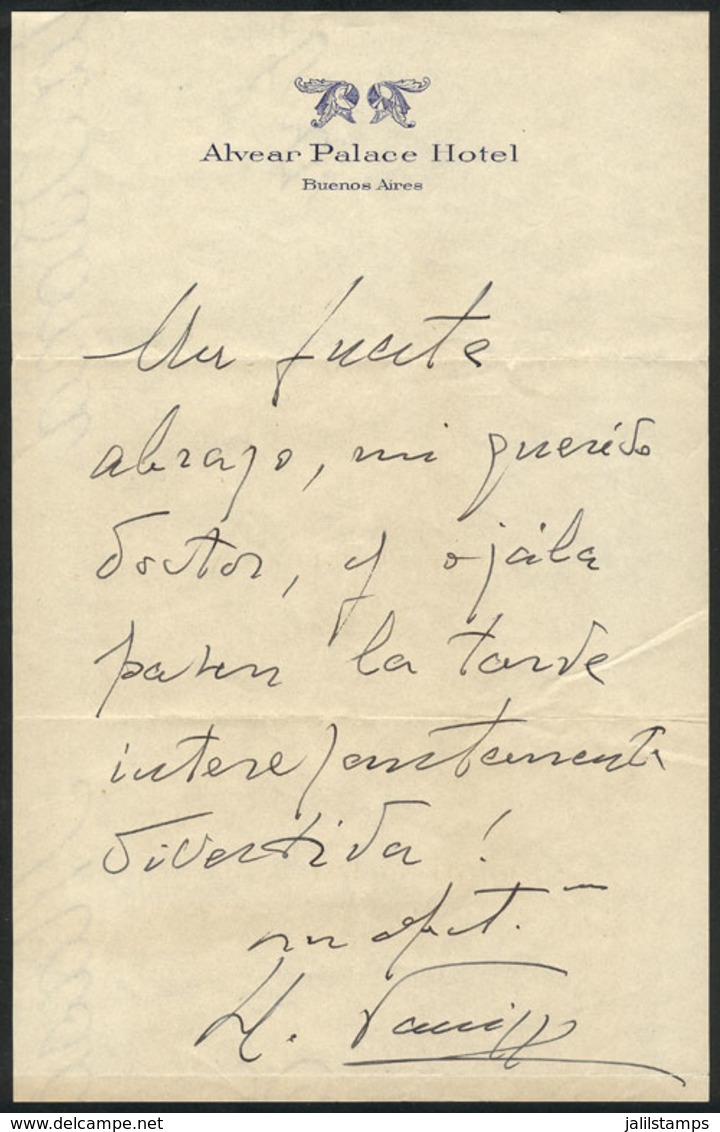 Alvear Palace Hotel
Buenos Aires
Un fuerte
abrazo, mi querido
doctor, y ojála
pasen la tarde
interesantamente
divertida!
su
H.
jalilstamps